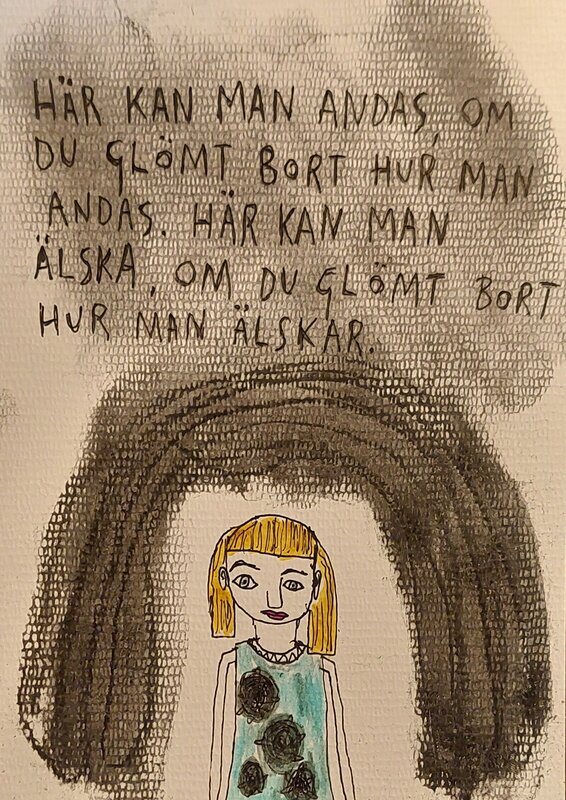 HÄR KAN MAN ANDAS, OM
DU GLÖMT BORT HUR MAN
ANDAS. HÄR KAN MAN
ÄLSKA, OM DU GLÖMT BORT
HUR MAN ÄLSKAR.